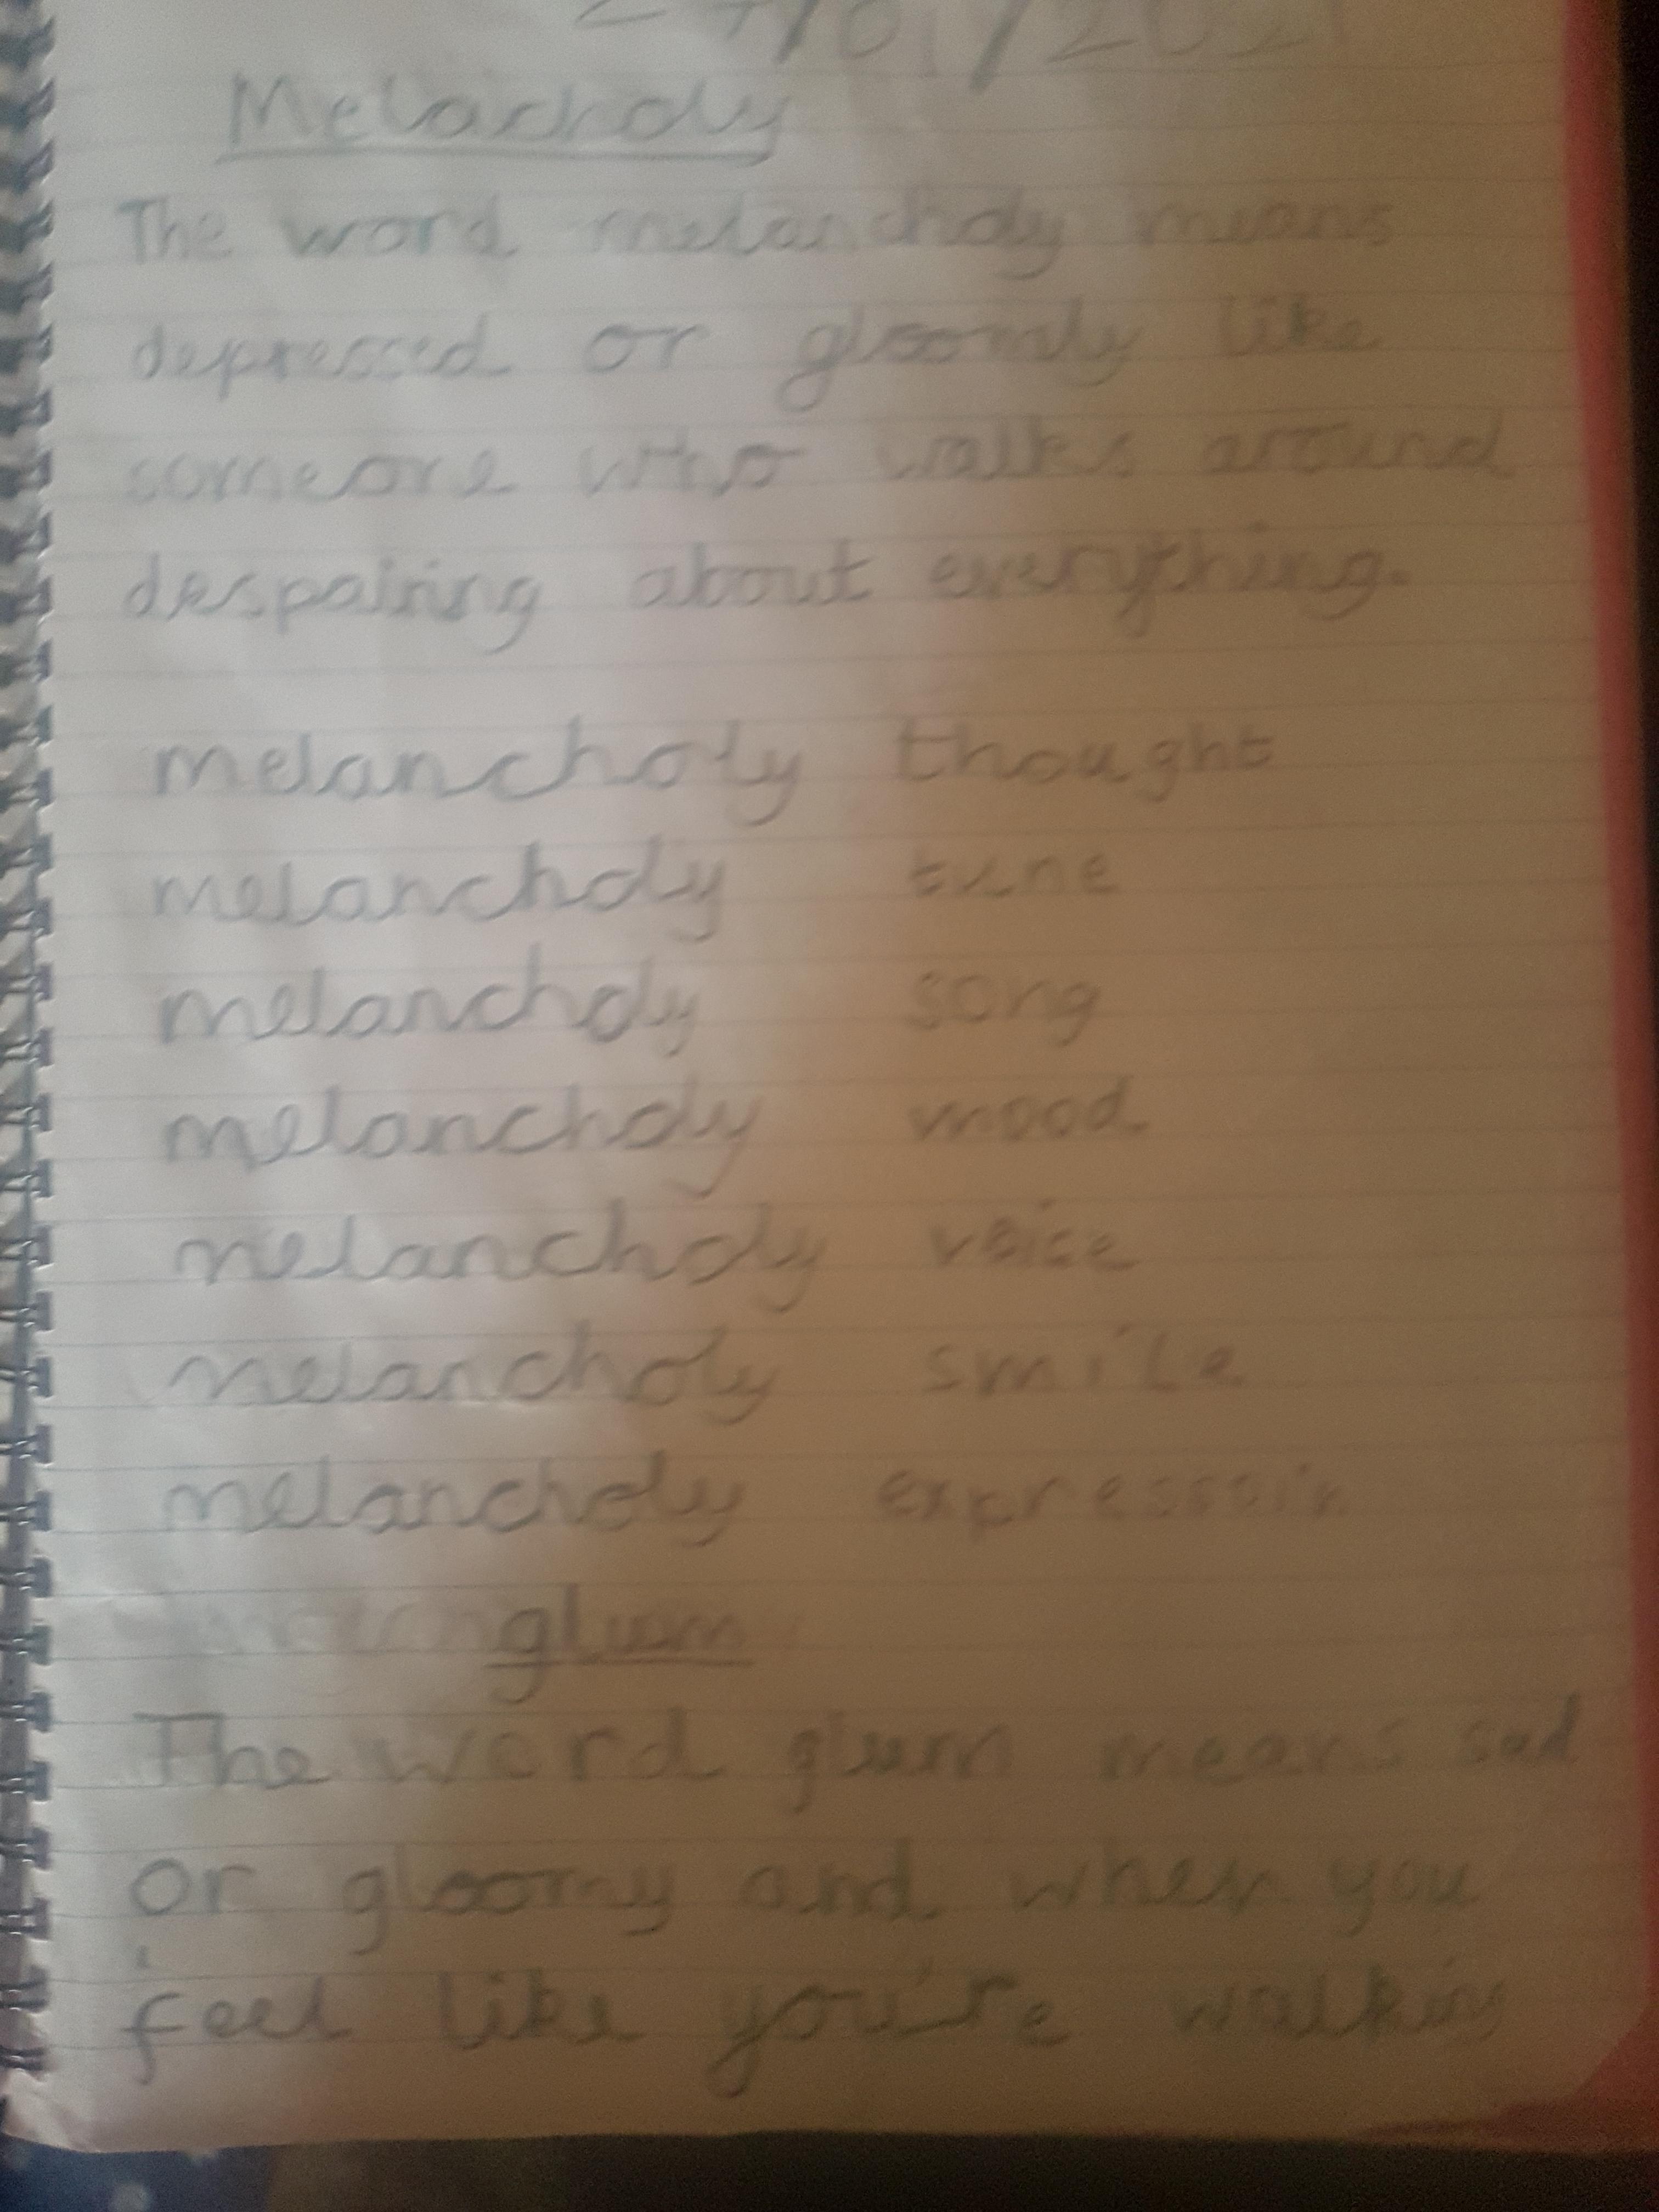 Melacholy
The word melancholy means
depressed or gloomly like
someone who walks around
despairing about everything.
melancholy thought
melancholy tune
melancholy song
melancholy mood
melancholy voice
melancholy smile
melancholy expressoin
glum
The word glum means sad
or gloomy and when you
feel like you're walking